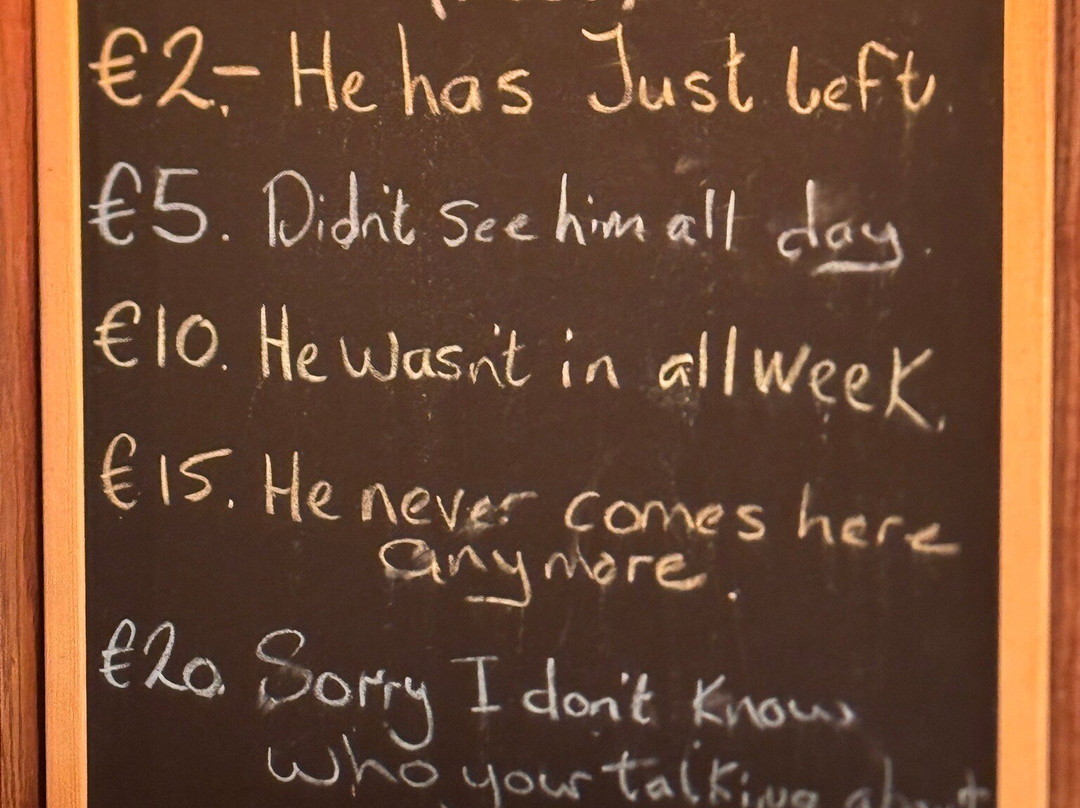 €2.- He has Just left.
€5. Didn't see him all day.
€10. He wasn't in all week.
€15. He never comes here
anymore.
€20. Sorry I don't know
who your talking about